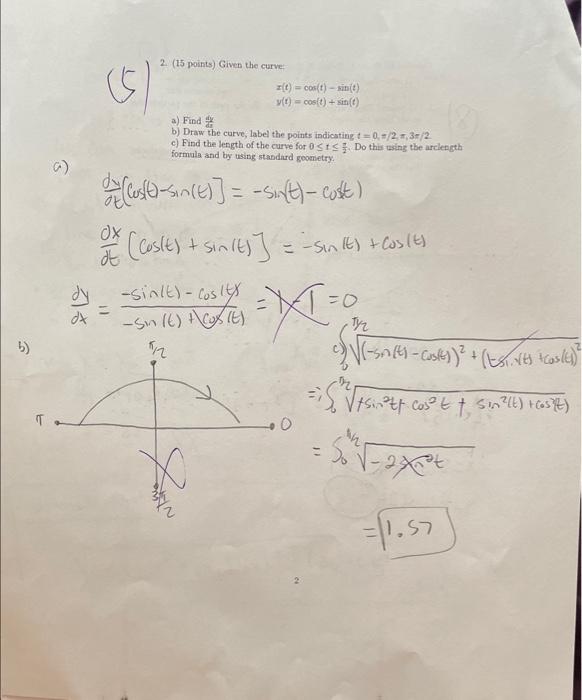 (5)
2. (15 points) Given the curve:
x(t) = cos(t) − sin(t)
y(t) = cos(t) + sin(t)
a) Find dy/dx
b) Draw the curve, label the points indicating t = 0, π/2, π, 3π/2.
c) Find the length of the curve for 0 ≤ t ≤ π/2. Do this using the arclength
formula and by using standard geometry.
a)
dy/dt [cos(t)-sin(t)] = -sin(t)-cos(t)
dx/dt [cos(t) + sin(t)] = -sin(t) + cos(t)
dy/dx = -sin(t) - cos(t) / -sin(t) + cos(t) = 1-1 = 0
b)
π/2
π
0
3π/2
c) ∫0 π/2 √(-sin(t) - cos(t))² + (-sin(t) + cos(t))²
= ∫0 π/2 √+sin²t + cos²t + sin²(t) + cos²(t)
= ∫0 π/2 √-2sin²t
= 1.57
2